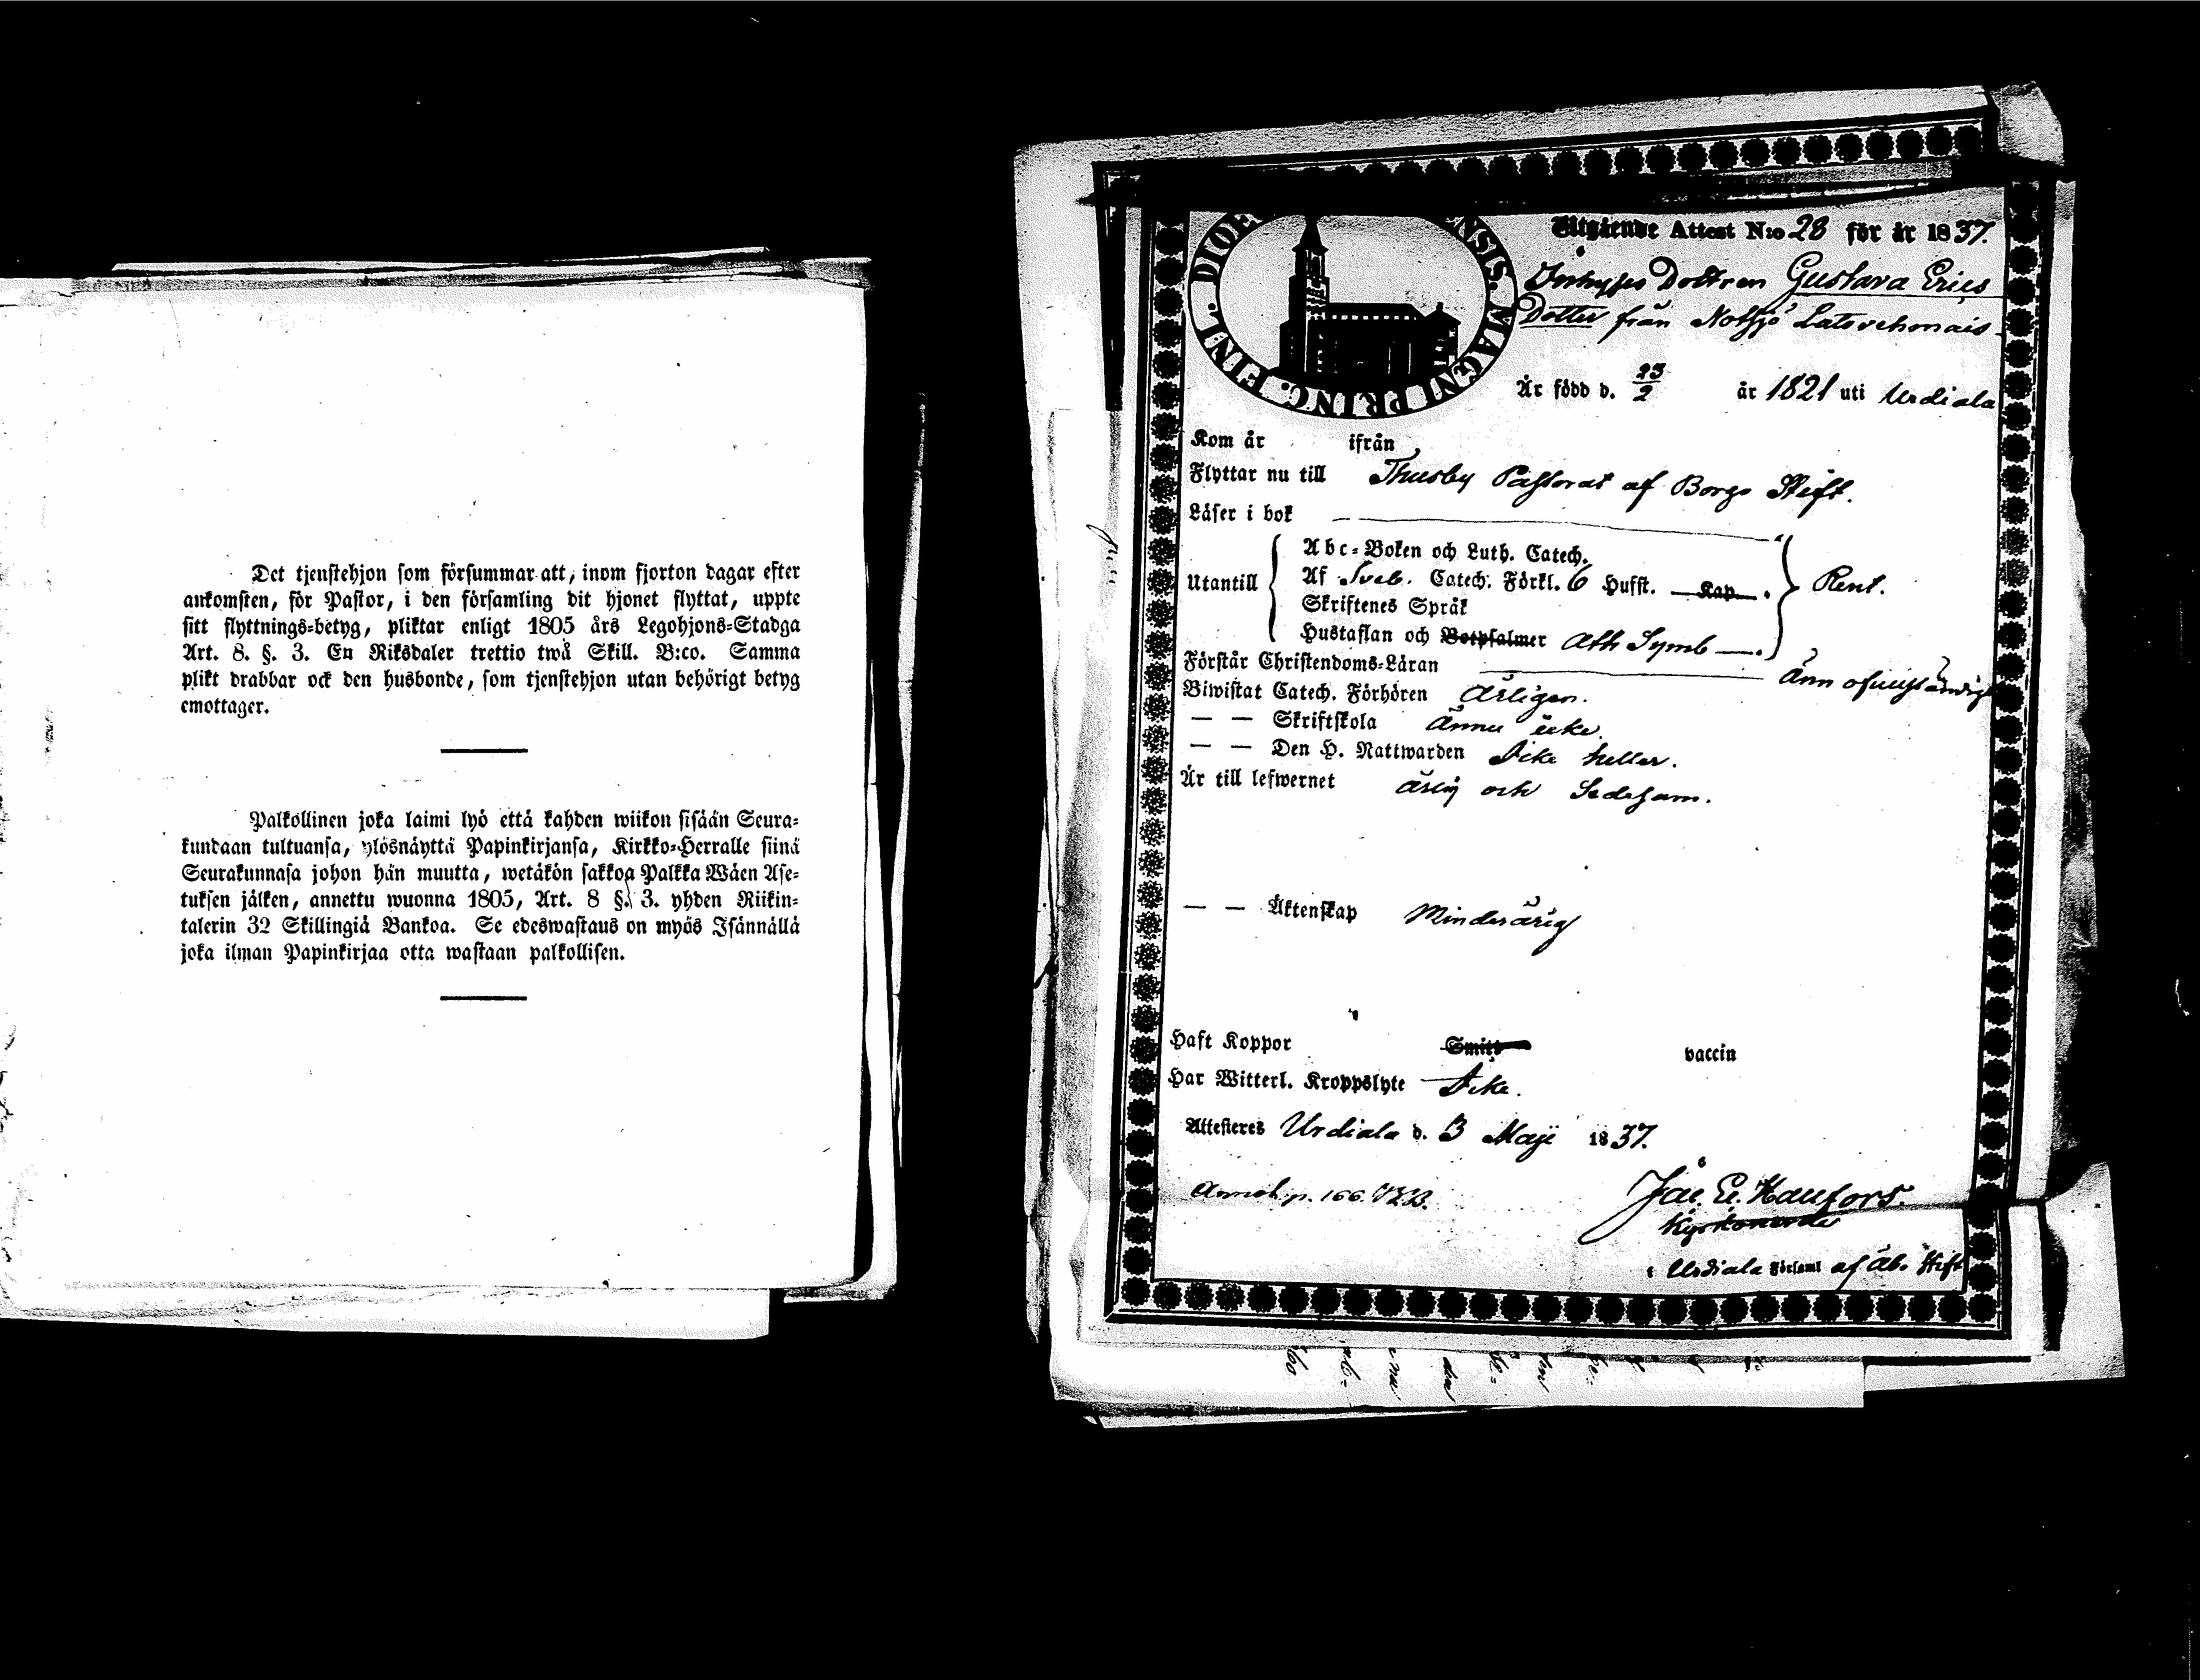 Det tjenstehjon som försummar att, inom fjorton dagar efter
ankomsten, för Pastor, i den församling dit hjonet flyttat, uppte
sitt flyttnings-betyg, pliktar enligt 1805 års Legohjons-Stadga
Art. 8. §. 3. En Riksdaler trettio twå Skill. B:co. Samma
plikt drabbar ock den husbonde, som tjenstehjon utan behörigt betyg
emottager.
Palkollinen joka laimi lyö että kahden wiikon sisään Seura-
kundaan tultuansa, ylösnäyttä Papinkirjansa, Kirkko-Herralle siinä
Seurakunnasa johon hän muutta, wetäkön sakkoa Palkka Wäen Ase-
tuksen jälken, annettu wuonna 1805, Art. 8 §. 3. yhden Riikin-
talerin 32 Skillingiä Bankoa. Se edeswastaus on myös Isännällä
joka ilman Papinkirjaa otta wastaan palkollisen.
FINL. DIOE NSIS. MAGNI PRINC.
Utgående Attest N:o 28 för år 1837.
Inhyses Dottren Gustava Erics
Dotter från Notsjö
Är född d. 23/2 år 1821 uti Urdiala
Kom år ifrån
Flyttar nu till Thusby Pastorat af Borgo Stift.
Läser i bok
Abc-Boken och Luth. Catech.
Utantill Af Sveb. Catech. Förkl. 6 Hufst. Kap. Rent.
Skriftenes Språk
Hustaflan och Botpsalmer Ath Symb
Förstår Christendoms-Läran Änn
Biwistat Catech. Förhören Årligen.
— — Skriftskola Ännu icke.
— — Den H. Nattwarden Icke heller.
Är till lefwernet ärlig och Sedesam.
— — Äktenskap Minderårig
Haft Koppor Smitt vaccin
Har Witterl. Kroppslyte Icke.
Attesteres Urdiala d. 3 Maji 1837.
p. 166.
Kyrkoherde
i Urdiala Församl af Åbo Stift